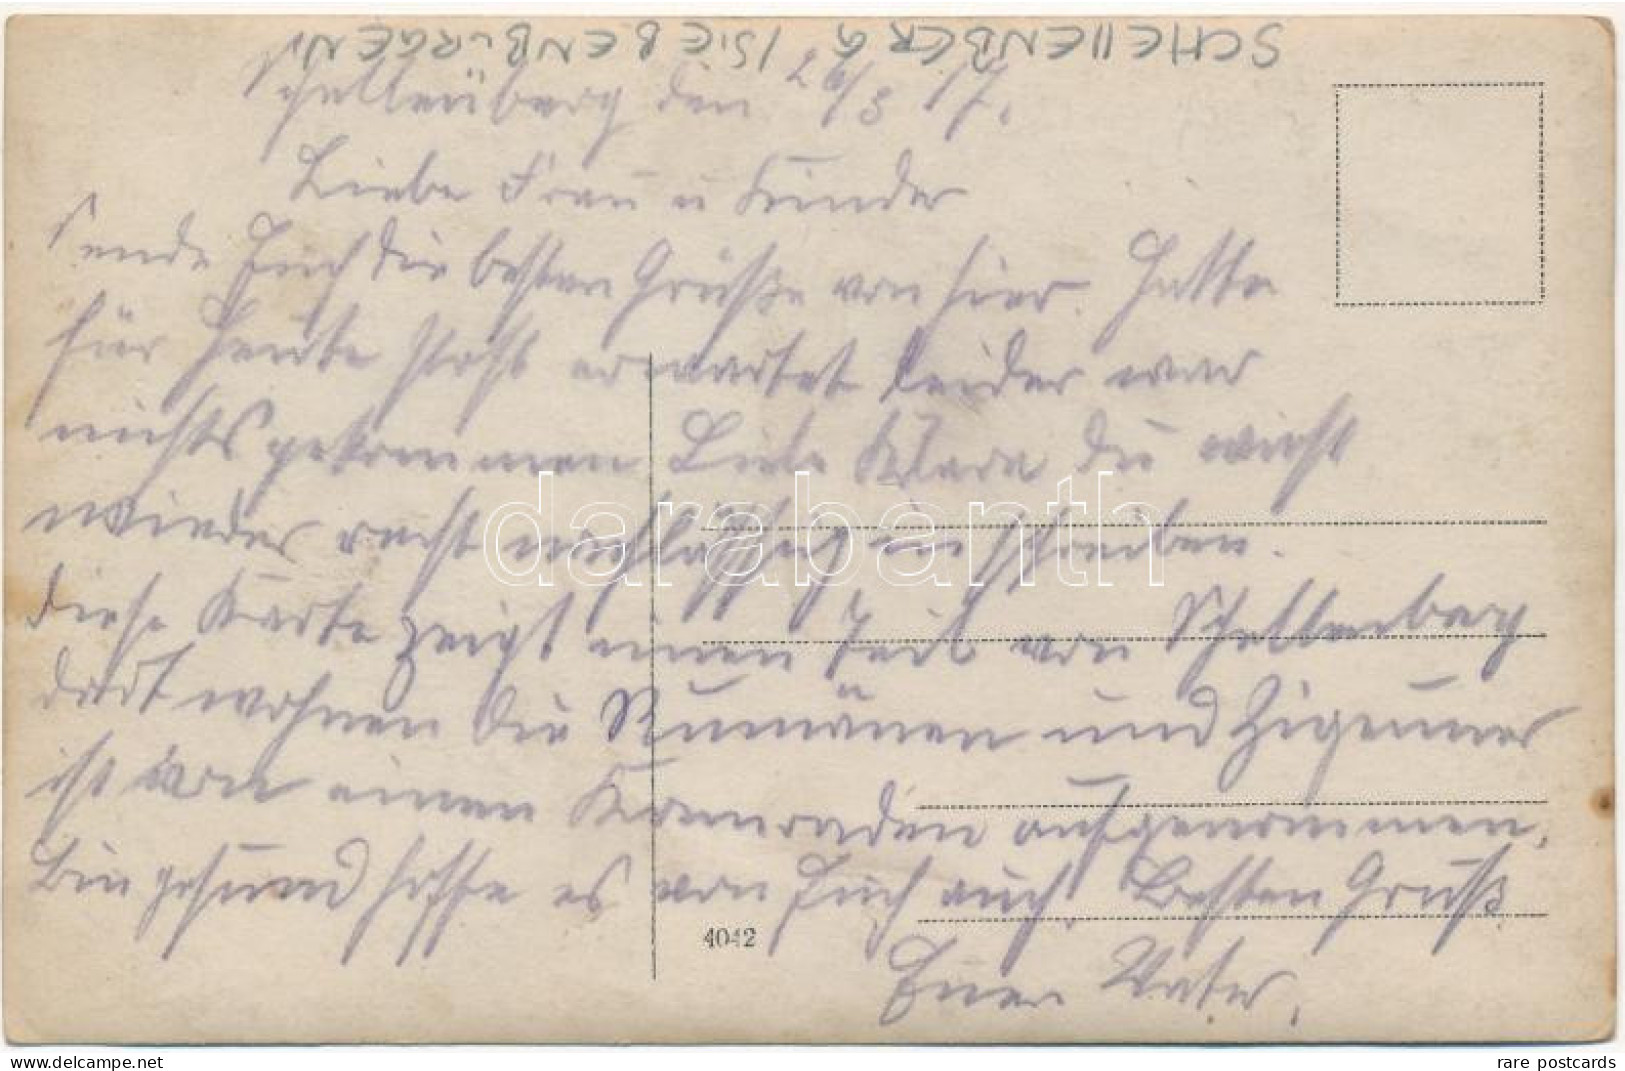 SCHELLENBERG / SIEBENBÜRGEN
Schellenberg den 26/3 17.
Liebe Frau u Kinder
Sende Euch die besten Grüße von hier. Hatte
für Heute Post erwartet leider war
nichts gekommen Liebe Klara du wirst
wieder recht nachlässig im schreiben.
diese Karte zeigt einen Teil von Schellenberg
dort wohnen die Rumänen und Zigeuner
ist von einen Kameraden aufgenommen.
Bin gesund hoffe es von Euch auch. Besten Gruß
Euer Vater.
4042
darabanth
delcampe.net
rare postcards